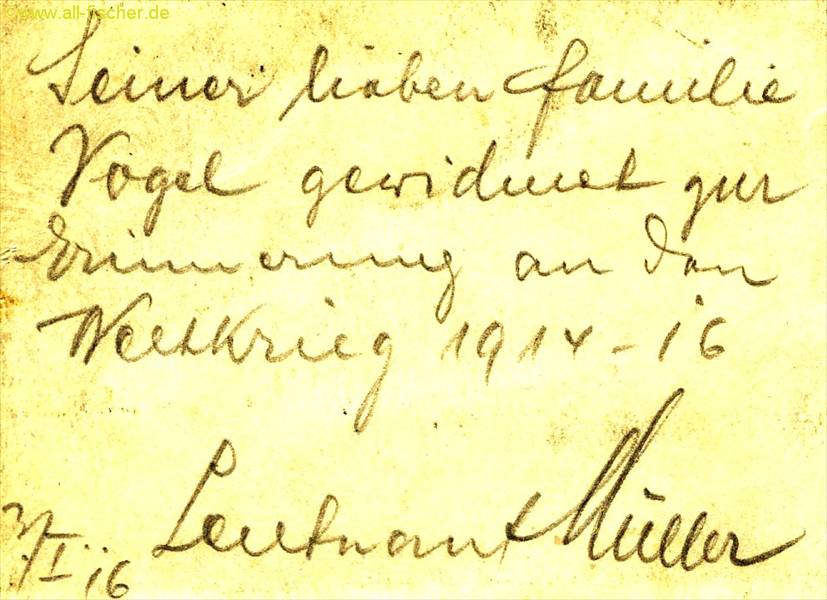 ©www.all-fischer.de
Seiner lieben Familie
Vogel gewidmet zur
Erinnerung an den
Weltkrieg 1914-16
Leutnant Müller
I. 16